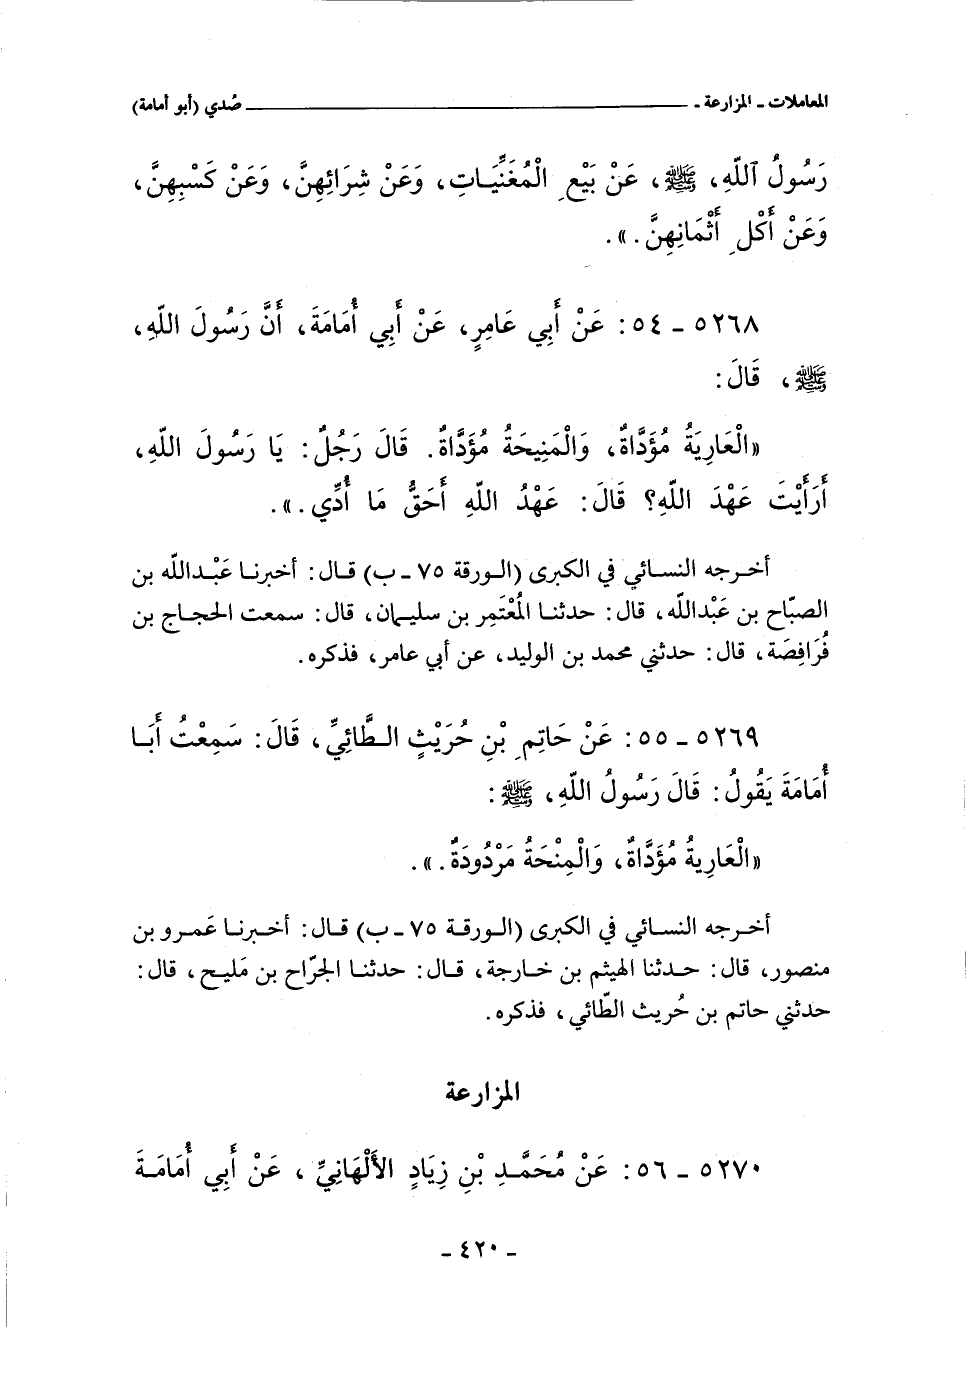 المعاملات ـ المزارعة ـ ــــــــــ صُدي (أبو أمامة)
رَسُولُ ٱللّهِ، ﷺ، عَنْ بَيْعِ الْمُغَنِّيَاتِ، وَعَنْ شِرَائِهِنَّ، وَعَنْ كَسْبِهِنَّ،
وَعَنْ أَكْلِ أَثْمَانِهِنَّ.».
٥٢٦٨ ـ ٥٤: عَنْ أَبِي عَامِرٍ، عَنْ أَبِي أُمَامَةَ، أَنَّ رَسُولَ اللّهِ،
ﷺ، قَالَ:
«الْعَارِيَةُ مُؤَدَّاةٌ، وَالْمَنِيحَةُ مُؤَدَّاةٌ. قَالَ رَجُلٌ: يَا رَسُولَ اللّهِ،
أَرَأَيْتَ عَهْدَ اللّهِ؟ قَالَ: عَهْدُ اللّهِ أَحَقُّ مَا أُدِّي.».
أخرجه النسائي في الكبرى (الورقة ٧٥ ـ ب) قال: أخبرنا عَبْدالله بن
الصبّاح بن عَبْدالله، قال: حدثنا المُعْتَمِر بن سليمان، قال: سمعت الحجاج بن
فُرَافِصَة، قال: حدثني محمد بن الوليد، عن أبي عامر، فذكره.
٥٢٦٩ ـ ٥٥: عَنْ حَاتِمِ بْنِ حُرَيْثٍ الطَّائِيِّ، قَالَ: سَمِعْتُ أَبَا
أُمَامَةَ يَقُولُ: قَالَ رَسُولُ اللّهِ، ﷺ:
«الْعَارِيةُ مُؤَدَّاةٌ، وَالْمِنْحَةُ مَرْدُودَةٌ.».
أخرجه النسائي في الكبرى (الورقة ٧٥ ـ ب) قال: أخبرنا عَمرو بن
منصور، قال: حدثنا الهيثم بن خارجة، قال: حدثنا الجرّاح بن مَليح، قال:
حدثني حاتم بن حُريث الطّائي، فذكره.
المزارعة
٥٢٧٠ ـ ٥٦: عَنْ مُحَمَّدِ بْنِ زِيَادٍ الأَلْهَانِيِّ، عَنْ أَبِي أُمَامَةَ
ـ ٤٢٠ ـ